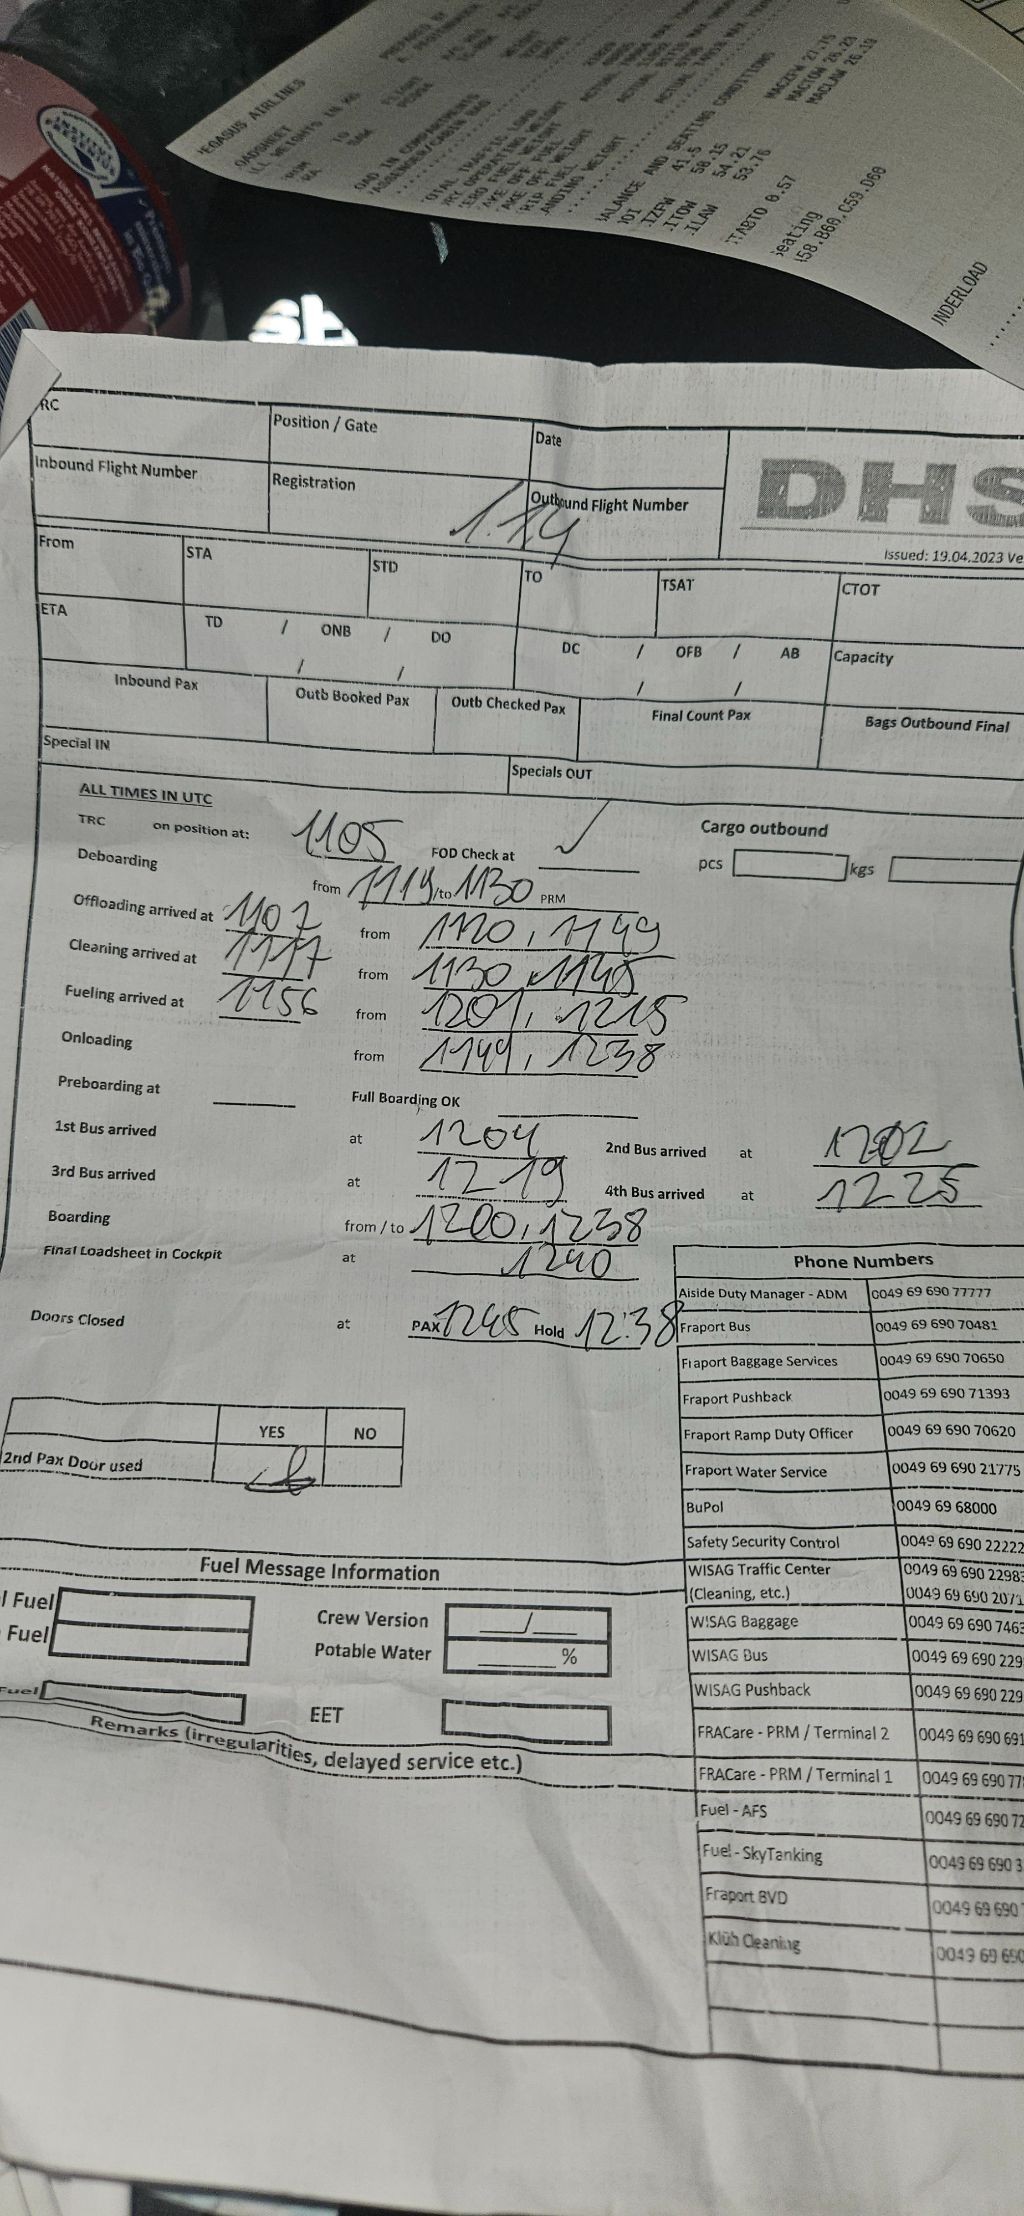 'EGASUS AIRLINES
OADSHEET
PREPARED BY
FLIGHT
TOTAL TRAFFIC LOAD
DRY OPERATING WEIGHT
ZERO FUEL WEIGHT
TAKE OFF FUEL
TAKE OFF WEIGHT
TRIP FUEL
LANDING WEIGHT
BALANCE AND SEATING CONDITIONS
DOI 41.5 MACZFW 27.75
LIZFW 58.15 MACTOW 26.23
LITOW 54.21 MACLAW 26.19
LILAW 53.76
STABTO 0.57
Seating
A58.B60.C59.D60
UNDERLOAD
RC
Position / Gate
Date
DHS
Inbound Flight Number
Registration
Outbound Flight Number
Issued: 19.04.2023 Ve
From
STA
STD
TO
TSAT
CTOT
ETA
TD / ONB / DO
DC / OFB / AB
Capacity
/ /
/ /
Inbound Pax
Outb Booked Pax
Outb Checked Pax
Final Count Pax
Bags Outbound Final
Special IN
Specials OUT
ALL TIMES IN UTC
TRC on position at: 1105 FOD Check at ✓
Cargo outbound
pcs kgs
Deboarding from 1114 /to 1130 PRM
Offloading arrived at 1107 from 1120, 1149
Cleaning arrived at 1117 from 1130, 1145
Fueling arrived at 1156 from 1201, 1215
Onloading from 1149, 1238
Preboarding at Full Boarding OK
1st Bus arrived at 1204 2nd Bus arrived at 1202
3rd Bus arrived at 1219 4th Bus arrived at 1225
Boarding from / to 1200, 1238
Final Loadsheet in Cockpit at 1240
Doors Closed at PAX 1245 Hold 12:38
YES NO
2nd Pax Door used
Phone Numbers
Aiside Duty Manager - ADM 0049 69 690 77777
Fraport Bus 0049 69 690 70481
Fraport Baggage Services 0049 69 690 70650
Fraport Pushback 0049 69 690 71393
Fraport Ramp Duty Officer 0049 69 690 70620
Fraport Water Service 0049 69 690 21775
BuPol 0049 69 68000
Safety Security Control 0049 69 690 22222
WISAG Traffic Center 0049 69 690 2298
(Cleaning, etc.) 0049 69 690 207
WISAG Baggage 0049 69 690 746
WISAG Bus 0049 69 690 229
WISAG Pushback 0049 69 690 229
FRACare - PRM / Terminal 2 0049 69 690 691
FRACare - PRM / Terminal 1 0049 69 690 77
Fuel - AFS 0049 69 690 72
Fuel - SkyTanking 0049 69 690 3
Fraport BVD 0049 69 690
Klüh Cleaning 0049 69 690
Fuel Message Information
l Fuel
Fuel
Crew Version /
Potable Water %
Fuel
EET
Remarks (irregularities, delayed service etc.)